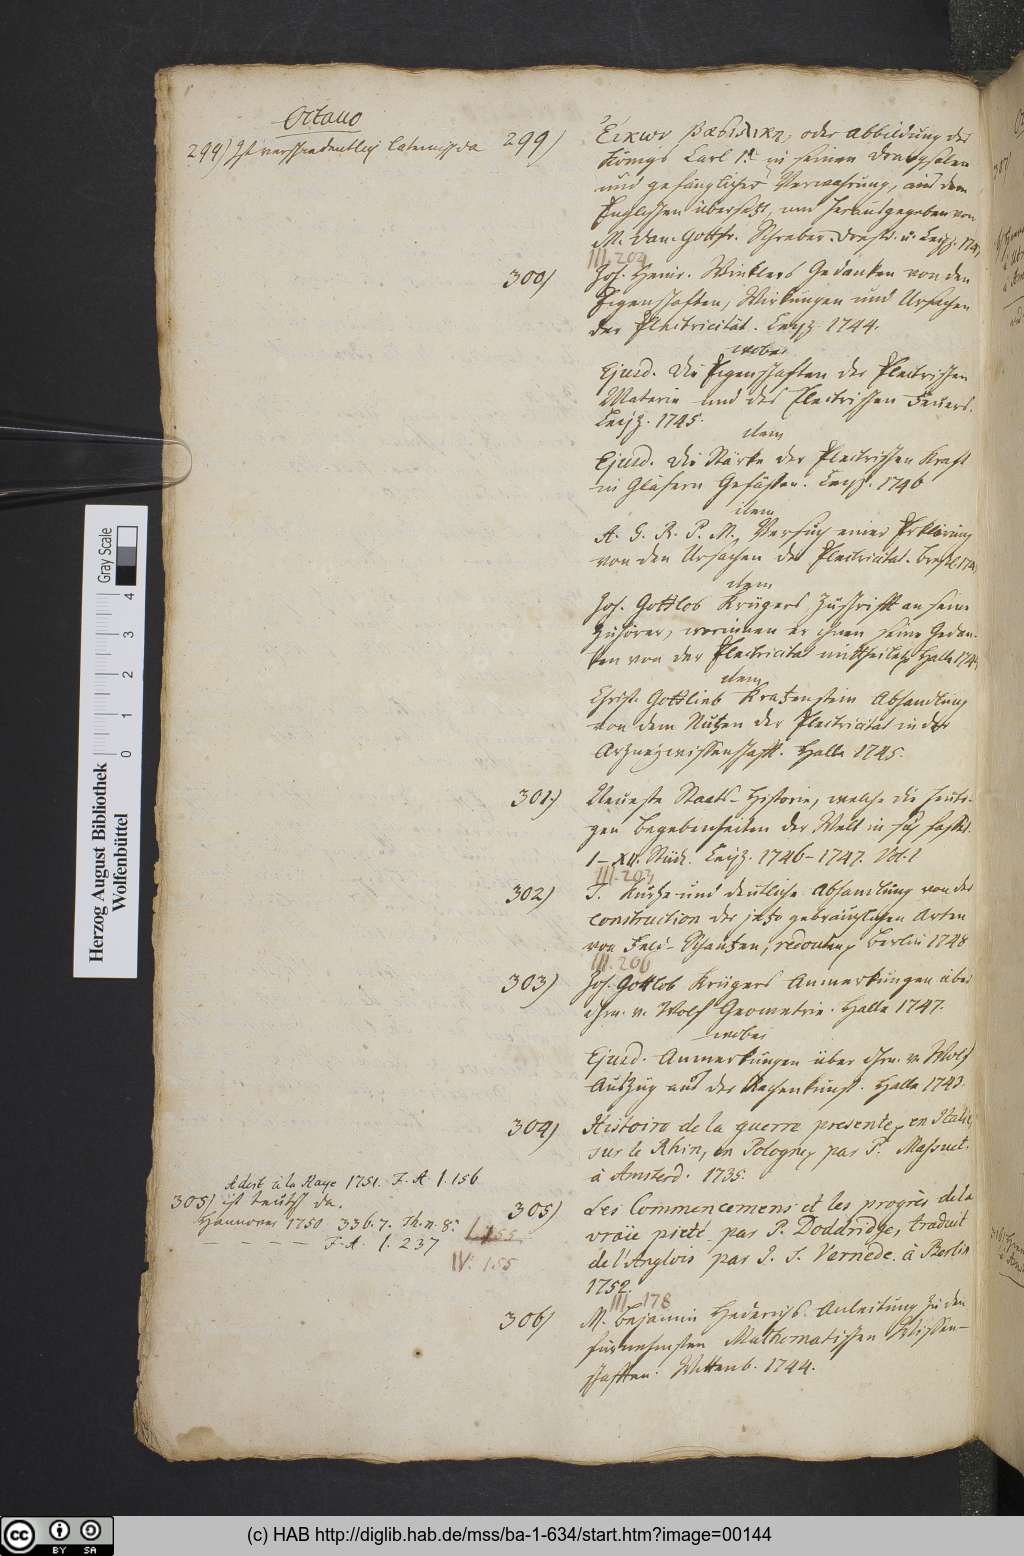 Octavo
299) Ist verschiedentlich lateinisch da
299) Εἰκων βασιλικη, oder Abbildung des
Königs Carl I. in seinen Drangsalen
und gefänglicher Verwahrung, aus dem
Englischen übersetzt, und herausgegeben von
M. Dan. Gottfr. Schreber. Dresd. u. Leipz. 174
III. 204
300) Joh. Heinr. Winklers Gedanken von den
Eigenschafften, Wirkungen und Ursachen
der Electricität. Leipz. 1744.
wobei
Ejusd. Die Eigenschaften der Electrischen
Materie und des Electrischen Feuers.
Leipz. 1745.
item
Ejusd. Die Stärke der Electrischen Kraft
in Gläsern Gefässen. Leipz. 1746
item
A. G. R. P. M. Versuch einer Erklärung
von den Ursachen der Electricität. Bresl. 174
item
Joh. Gottlob Krügers Zuschrifft an seine
Zuhörer, worinnen er ihnen seine Gedan-
ken von der Electricität mittheilet, Halle 1744
item
Christ. Gottlieb Kratzenstein Abhandlung
von dem Nutzen der Electricität in der
Arzneywissenschafft. Halle 1745.
301) Neueste Staats-Historie, welche die heuti-
gen Begebenheiten der Welt in sich fasset.
1-XII. Stück. Leipz. 1746-1747. Vol. 1
III. 203
302) J. Kurtze und deutliche Abhandlung von der
construction der jetzo gebräuchlichen Arten
von Feld-Schantzen, redouten, Berlin 1748
III. 206
303) Joh. Gottlob Krügers Anmerkungen über
Hrn. v. Wolf Geometrie. Halle 1747.
wobei
Ejusd. Anmerkungen über Hrn. v. Wolf
Auszug aus der Rechenkunst. Halle 1743.
304) Histoire de la guerre presente, en Italie,
sur le Rhin, en Pologne, par P. Massuet.
à Amsterd. 1735.
Adest à la Haye 1751. F. A. 1. 156
305) ist teutsch da.
Hannover 1750 336. 7. Th. n. 8.
F. A. 1. 237
I. 155
IV. 155
305) Les Commencemens et les progrès de la
vraïe pieté par P. Doddridge, traduit
de l'Anglois par J. S. Vernede. à Berlin
1752.
III. 178
306) M. Benjamin Hederichs Anleitung zu den
fürnehmsten Mathematischen Wissen-
schafften. Wittenb. 1744.
Herzog August Bibliothek
Wolfenbüttel
Gray Scale
0 1 2 3 4
(c) HAB http://diglib.hab.de/mss/ba-1-634/start.htm?image=00144
cc BY SA